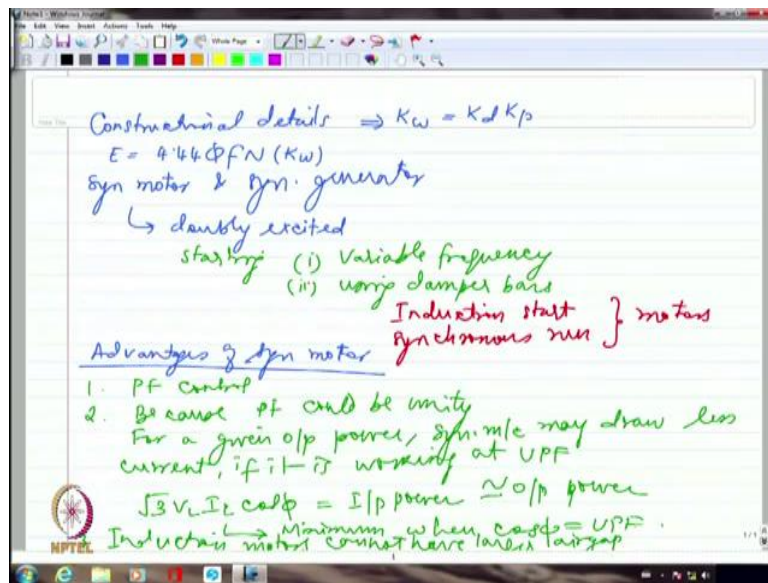 Note1 - Windows Journal
File Edit View Insert Actions Tools Help
Whole Page
Note Title
Constructional details ⇒ Kw = Kd Kp
E = 4.44 Φ f N (Kw)
Syn motor & syn. generator
↳ doubly excited
starting (i) Variable frequency
(ii) using damper bars
Induction start
Synchronous run } motors
Advantages of Syn motor
1. PF control
2. Because pf could be unity
For a given o/p power, syn. m/c may draw less
current, if it is working at UPF
√3 VL IL cosϕ = I/p power ≃ o/p power
↳ Minimum when cosϕ = UPF.
* Induction motors cannot have larger airgap
NPTEL
1/1